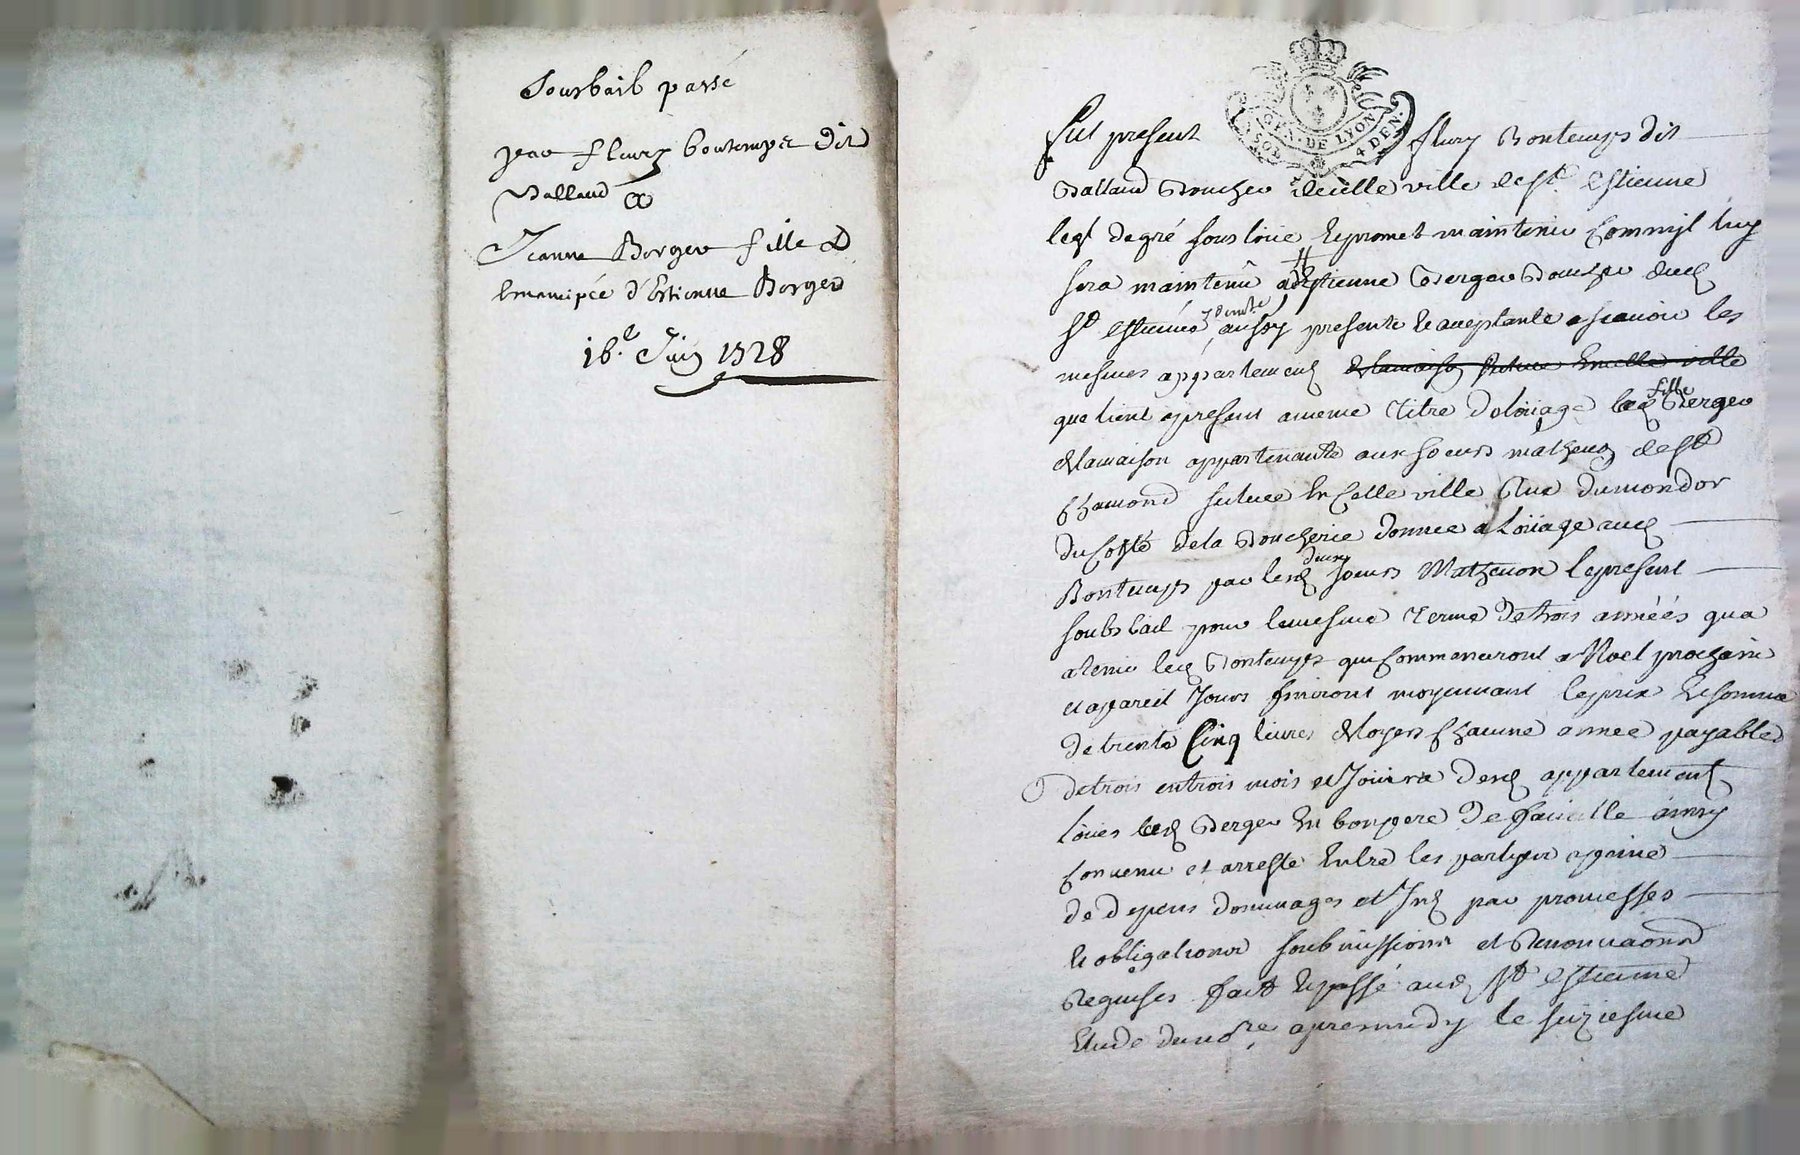 Sousbail passé
par fleury bontemps dit
Ballaud a
Jeanne Berger fille &
Emancipée d'Estienne Berger
16.e Juin 1728
GEN. DE LYON
SOL 4 DEN.
Fut present fleury Bontemps dit
Ballaud Boucher de celle ville de St. Estienne
leql de gré sous loüe & promet maintenir comm'il luy
sera maintenû a Estienne Berger Boucher dud
St Estienne aussy presente & aceptante ascauoir les
mesmes appartemens de la maison scituée en celle ville
que tient apresent a meme titre de loüage lad fille Berger
de la maison appartenante aux soeurs matheuon de St
Chamond scituée en celle ville Rue du mondor
du costé de la Boucherie donnée a Loüage aud
Bontemps par lesd deux soeurs Matheuon le present
soubs bail pour le mesme terme de trois années qu'a
a tenir led Bontemps qui commenceront a Noel prochain
et a pareil Jours finiront moyennant le prix & somme
de trente Cinq liures de loyers chacune année payables
de trois en trois mois et Joüira desd appartemens
loüés lad Berger en bon pere de famille ainsy
conuenu et arresté entre les parties a peine
de depens dommages et Int par promesses
& obligations soubmissions et Renonciaons
Requises fait & passé aud St Estienne
Etude du nore apresmidy le seiziesme